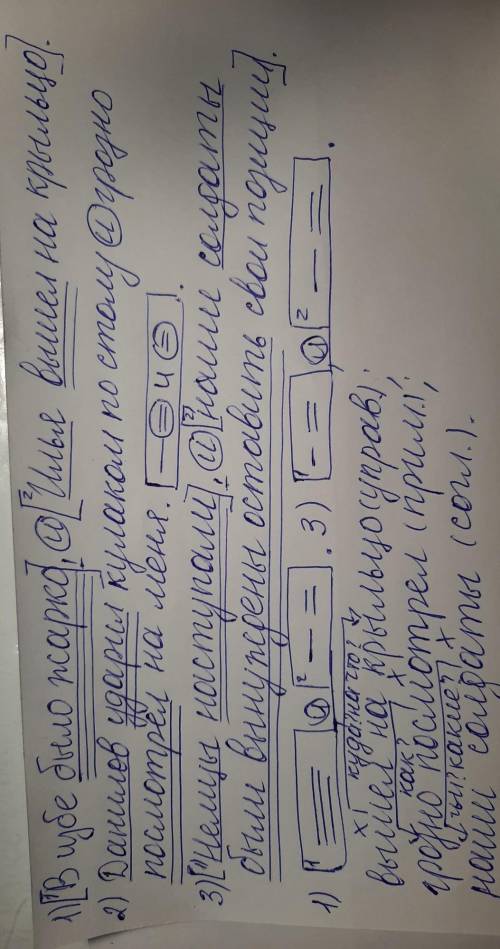 1) [¹В избе было жарко], и [²Илья вышел на крыльцо].
2) Данилов ударил кулаком по столу и грозно
посмотрел на меня. [— = и =].
3) [¹Немцы наступали], и [²наши солдаты
были вынуждены оставить свои позиции].
1) [¹ ≡], и [² — =]. 3) [¹ — =], и [² — =].
куда? на что?
вышел на крыльцо (управ.);
как?
грозно посмотрел (прим.);
чьи? какие?
наши солдаты (согл.).